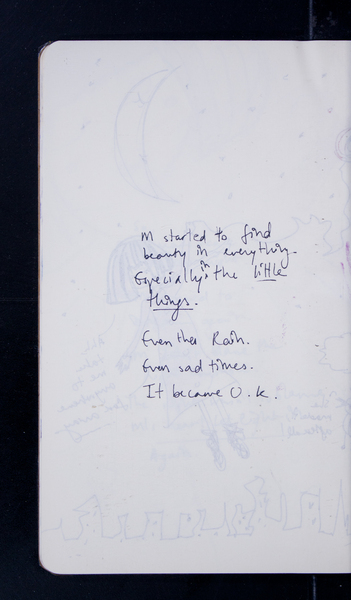 M started to find
beauty in everything.
Especially in the little
things.
Even the Rain.
Even sad times.
It became O.K.